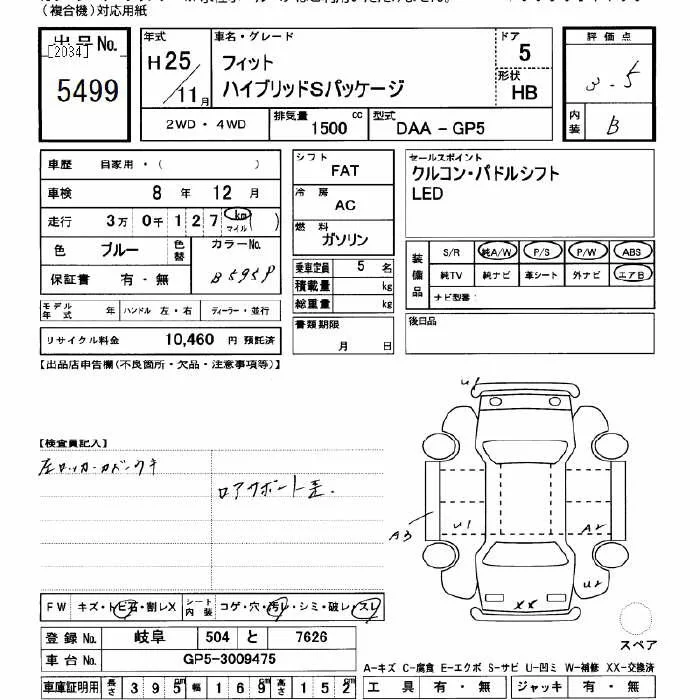 （複合機）対応用紙
出品No.
[2034]
5499
年式
H25/11月
車名・グレード
フィット
ハイブリッドSパッケージ
ドア
5
形状
HB
2WD ・ 4WD
排気量
1500 cc
型式
DAA - GP5
評価点
3.5
内装
B
車歴 自家用・( )
車検 8 年 12 月
走行 3万 0千 1 2 7 km マイル ( )
色 ブルー 色替
カラーNo.
B595P
保証書 有 ・ 無
モデル年式 年 ハンドル 左・右 ディーラー・並行
リサイクル料金 10,460 円 預託済
シフト
FAT
冷房
AC
燃料
ガソリン
乗車定員 5 名
積載量 kg
総重量 kg
書類期限
月 日
セールスポイント
クルコン・パドルシフト
LED
装備品
S/R 純A/W P/S P/W ABS
純TV 純ナビ 革シート 外ナビ エアB
ナビ型番:
後日品
【出品店申告欄(不良箇所・欠品・注意事項等)】
【検査員記入】
U1
A3
U1
A2
U2
XX
スペア
FW キズ・トビ石・割レX シート内装 コゲ・穴・汚レ・シミ・破レ・スレ
登録 No. 岐阜 504 と 7626
車台 No. GP5-3009475
車庫証明用 長さ 3 9 5 cm 幅 1 6 9 cm 高さ 1 5 2 cm
A-キズ C-腐食 E-エクボ S-サビ U-凹ミ W-補修 XX-交換済
工具 有 ・ 無 ジャッキ 有 ・ 無